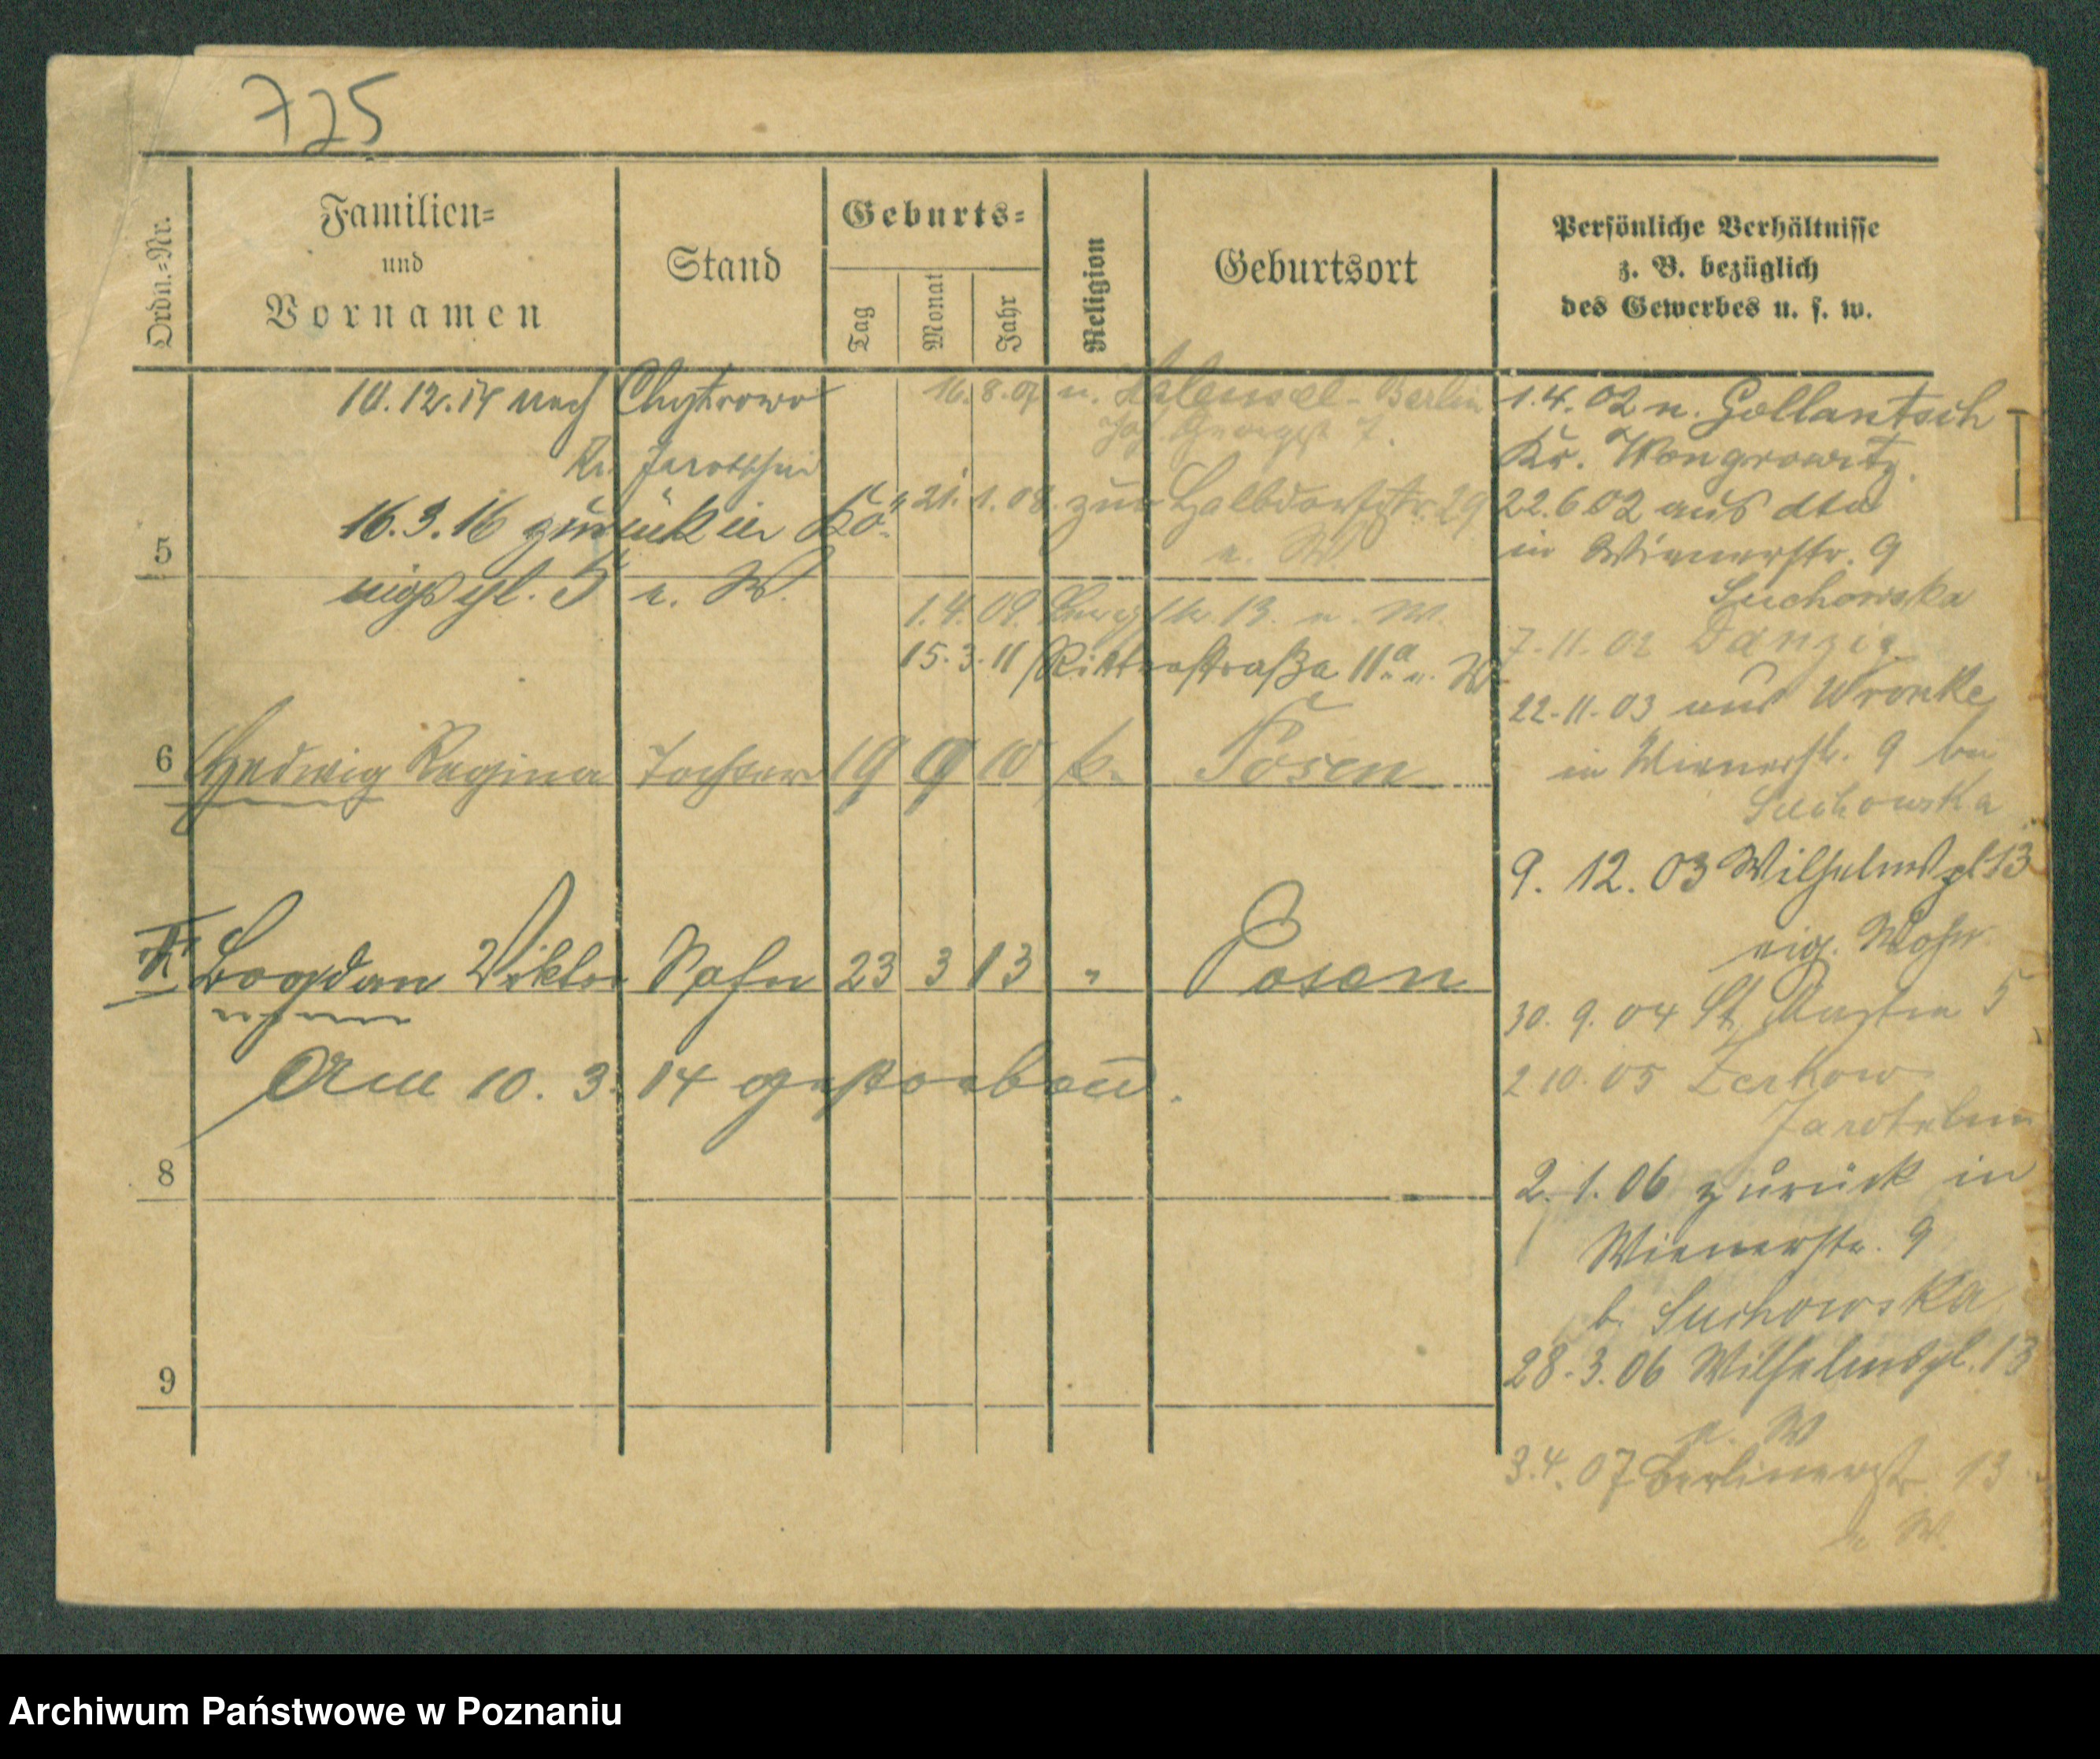 725
Ordn.-Nr.
Familien-
und
Vornamen
Stand
Geburts-
Tag
Monat
Jahr
Religion
Geburtsort
Persönliche Verhältnisse
z. B. bezüglich
des Gewerbes u. s. w.
12. 14 nach Chytrowo
Kr. Jarotschin
16. 3. 16 zurück in Kö-
nigspl. 5 e. W.
16. 8. 07 n. Halensee - Berlin
7.
21. 1. 08. zur Halbdorfstr. 29
e. W.
1. 4. 09. 13. e. W.
15. 3. 11 Ritterstraße 11a e. W.
5
6 Hedwig Regina Tochter 19 9 10 k. Posen
Bogdan Viktor Sohn 23 3 13 " Posen
Am 10. 3. 14 gestorben.
8
9
1. 4. 02 n. Gollantsch
Kr. Wongrowitz.
22. 6 02 aus dto
in Wienerstr. 9
Suchowska
7. 11. 02 Danzig
22. 11. 03 aus Wronke
in Wienerstr. 9 bei
Suchowska
9. 12. 03 Wilhelmspl 13
eig. Wohn
30. 9. 04 St. Martin 5
2 10. 05 Zerkow
Jarotschin
2. 1. 06 zurück in
Wienerstr. 9
b. Suchowska
28. 3. 06 Wilhelmspl. 13
e. W
3. 4. 07 Berlinerstr. 13
e. W.
Archiwum Państwowe w Poznaniu